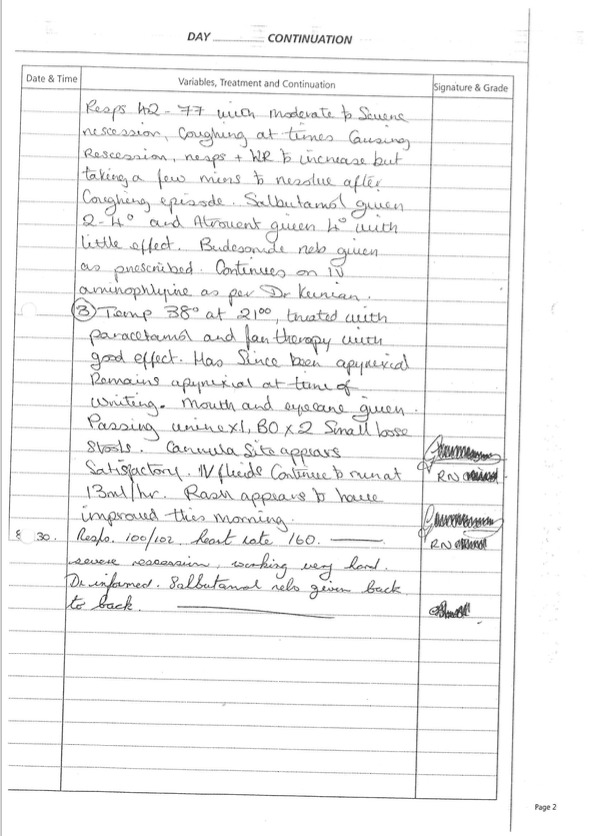 DAY ______ CONTINUATION
Date & Time
Variables, Treatment and Continuation
Signature & Grade
Resps 42 - 77 with moderate to Severe
rescession, Coughing at times Causing
Rescession, resps + WR to increase but
taking a few mins to resolve after
Coughing episode. Salbutamol given
2-4° and Atrovent given 4° with
little effect. Budesonide neb given
as prescribed. Continues on IV
aminophylline as per Dr
③ Temp 38° at 21⁰⁰, treated with
paracetamol and fan therapy with
good effect. Has Since been apyrexial
Remains apyrexial at time of
writing. Mouth and eyecare given.
Passing urine x1, BO x 2 Small loose
Stools. Cannula Site appears
Satisfactory. IV fluids Continue to run at
RN
13ml/hr. Rash appears to have
improved this morning.
8 30. Resps. 100/102, heart rate 160.
RN
severe rescession, working very hard.
Dr informed. Salbutamol nebs given back
to back.
Page 2